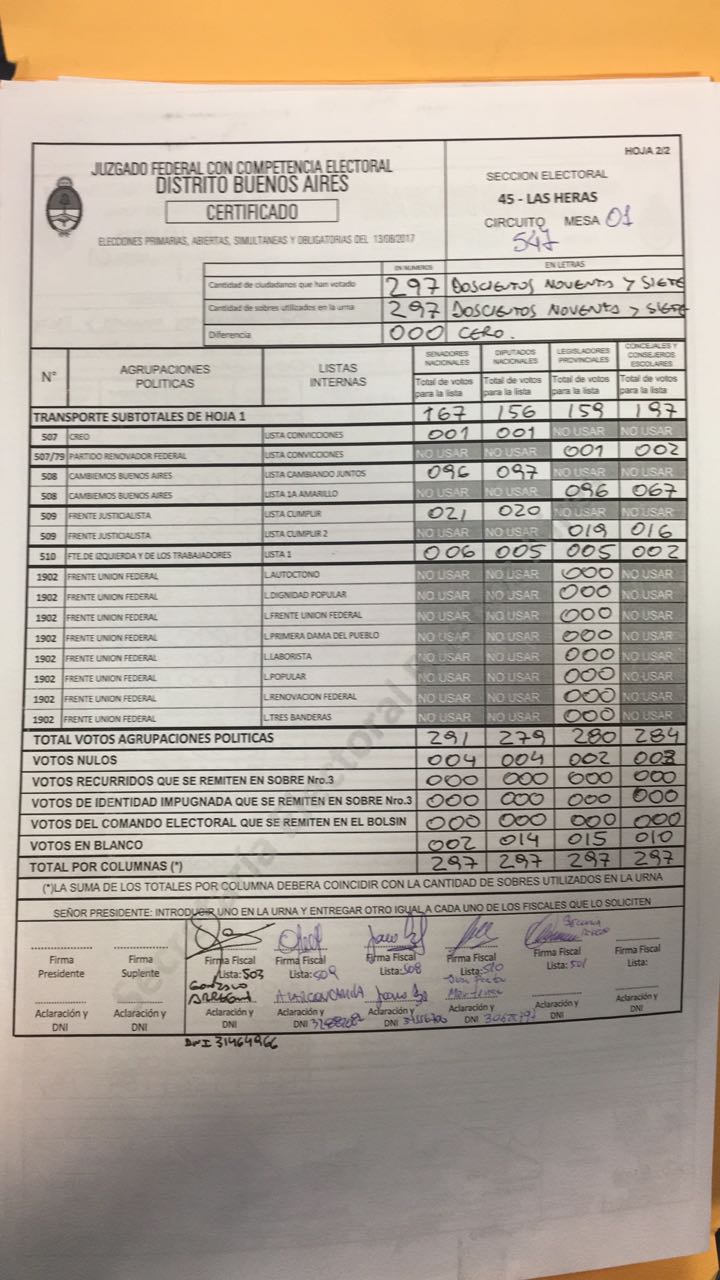 HOJA 2/2
JUZGADO FEDERAL CON COMPETENCIA ELECTORAL
DISTRITO BUENOS AIRES
CERTIFICADO
ELECCIONES PRIMARIAS, ABIERTAS, SIMULTANEAS Y OBLIGATORIAS DEL 13/08/2017
SECCION ELECTORAL
45 - LAS HERAS
CIRCUITO MESA 01
547
EN NUMEROS EN LETRAS
Cantidad de ciudadanos que han votado 297 DOSCIENTOS NOVENTA Y SIETE
Cantidad de sobres utilizados en la urna 297 DOSCIENTOS NOVENTA Y SIETE
Diferencia 000 CERO.
N° AGRUPACIONES POLITICAS LISTAS INTERNAS SENADORES NACIONALES DIPUTADOS NACIONALES LEGISLADORES PROVINCIALES CONCEJALES Y CONSEJEROS ESCOLARES
Total de votos para la lista Total de votos para la lista Total de votos para la lista Total de votos para la lista
TRANSPORTE SUBTOTALES DE HOJA 1 167 156 159 197
507 CREO LISTA CONVICCIONES 001 001 NO USAR NO USAR
507/79 PARTIDO RENOVADOR FEDERAL LISTA CONVICCIONES NO USAR NO USAR 001 002
508 CAMBIEMOS BUENOS AIRES LISTA CAMBIANDO JUNTOS 096 097 NO USAR NO USAR
508 CAMBIEMOS BUENOS AIRES LISTA 1A AMARILLO NO USAR NO USAR 096 067
509 FRENTE JUSTICIALISTA LISTA CUMPLIR 021 020 NO USAR NO USAR
509 FRENTE JUSTICIALISTA LISTA CUMPLIR 2 NO USAR NO USAR 019 016
510 FTE.DE IZQUIERDA Y DE LOS TRABAJADORES LISTA 1 006 005 005 002
1902 FRENTE UNION FEDERAL L.AUTOCTONO NO USAR NO USAR 000 NO USAR
1902 FRENTE UNION FEDERAL L.DIGNIDAD POPULAR NO USAR NO USAR 000 NO USAR
1902 FRENTE UNION FEDERAL L.FRENTE UNION FEDERAL NO USAR NO USAR 000 NO USAR
1902 FRENTE UNION FEDERAL L.PRIMERA DAMA DEL PUEBLO NO USAR NO USAR 000 NO USAR
1902 FRENTE UNION FEDERAL L.LABORISTA NO USAR NO USAR 000 NO USAR
1902 FRENTE UNION FEDERAL L.POPULAR NO USAR NO USAR 000 NO USAR
1902 FRENTE UNION FEDERAL L.RENOVACION FEDERAL NO USAR NO USAR 000 NO USAR
1902 FRENTE UNION FEDERAL L.TRES BANDERAS NO USAR NO USAR 000 NO USAR
TOTAL VOTOS AGRUPACIONES POLITICAS 291 279 280 284
VOTOS NULOS 004 004 002 003
VOTOS RECURRIDOS QUE SE REMITEN EN SOBRE Nro.3 000 000 000 000
VOTOS DE IDENTIDAD IMPUGNADA QUE SE REMITEN EN SOBRE Nro.3 000 000 000 000
VOTOS DEL COMANDO ELECTORAL QUE SE REMITEN EN EL BOLSIN 000 000 000 000
VOTOS EN BLANCO 002 014 015 010
TOTAL POR COLUMNAS (*) 297 297 297 297
(*)LA SUMA DE LOS TOTALES POR COLUMNA DEBERA COINCIDIR CON LA CANTIDAD DE SOBRES UTILIZADOS EN LA URNA
SEÑOR PRESIDENTE: INTRODUCIR UNO EN LA URNA Y ENTREGAR OTRO IGUAL A CADA UNO DE LOS FISCALES QUE LO SOLICITEN
Firma Presidente Firma Suplente Firma Fiscal Firma Fiscal Firma Fiscal Firma Fiscal Firma Fiscal Firma Fiscal
Lista: 503 Lista: 509 Lista: 508 Lista: 510 Lista: 501 Lista:
Aclaración y DNI Aclaración y DNI Aclaración y DNI Aclaración y DNI Aclaración y DNI Aclaración y DNI Aclaración y DNI Aclaración y DNI
DNI 31464966